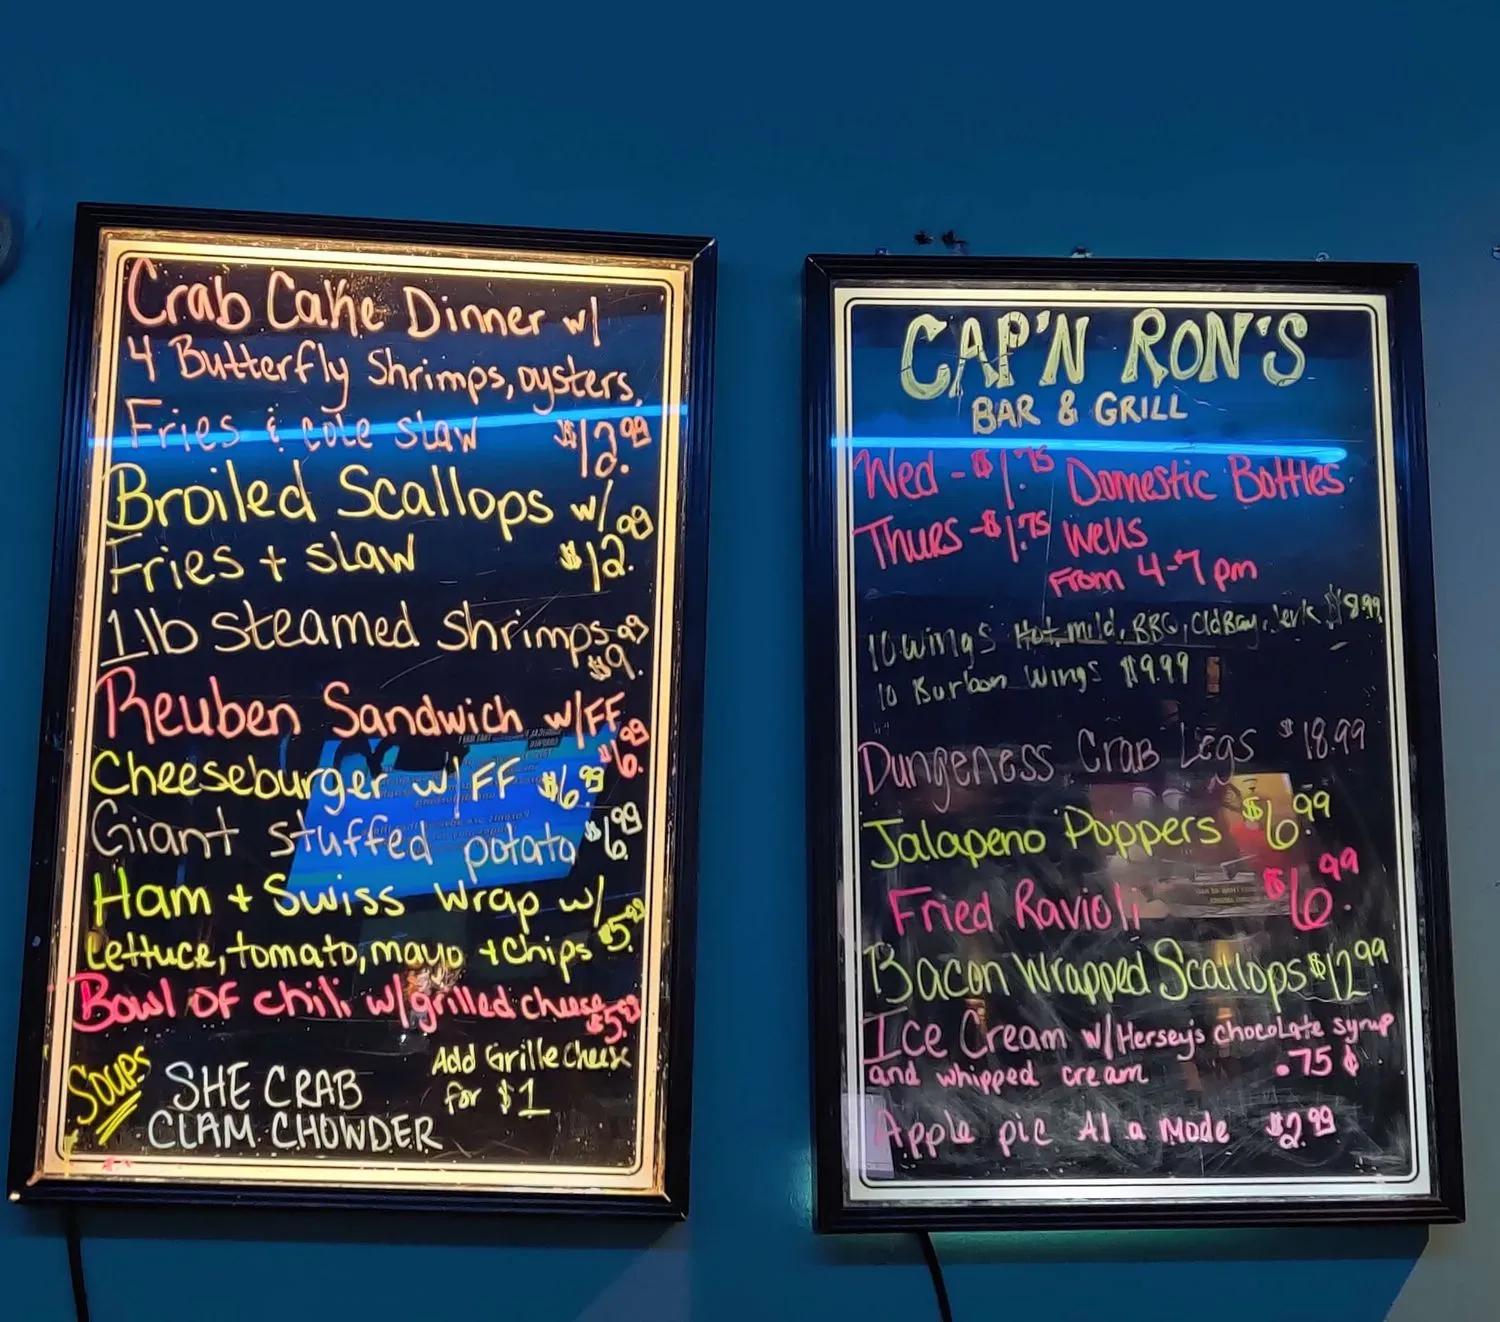 Crab Cake Dinner w/
4 Butterfly Shrimps, oysters,
Fries & cole slaw $12.99
Broiled Scallops w/
Fries + slaw $12.99
1 lb steamed shrimps $9.99
Reuben Sandwich w/FF
$6.99
Cheeseburger w/FF $6.99
Giant stuffed potato $6.99
Ham + Swiss wrap w/
Lettuce, tomato, mayo + Chips $5.99
Bowl of chili w/grilled cheese $5.99
Soups
SHE CRAB
CLAM CHOWDER
Add Grille Cheese
for $1
CAP'N RON'S
BAR & GRILL
Wed - $1.75 Domestic Bottles
Thurs - $1.75 Wells
From 4-7 pm
10 wings Hot, mild, BBQ, Old Bay, Jerk $8.99
10 Burbon Wings $9.99
Dungeness Crab Legs $18.99
Jalapeno Poppers $6.99
Fried Ravioli $6.99
Bacon Wrapped Scallops $12.99
Ice Cream w/Hersey's chocolate syrup
and whipped cream .75 ¢
Apple pie Al a Mode $2.99